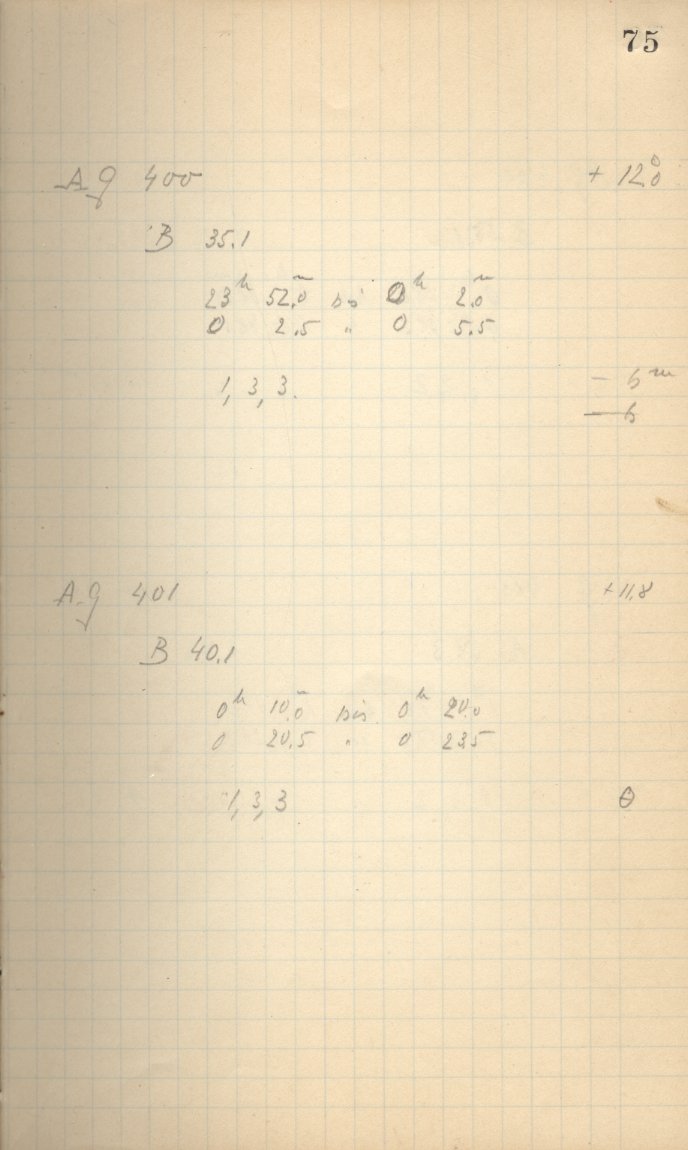 75
A g 400 + 12.°0
B 35.1
23ʰ 52.ᵐ0 bis 0ʰ 2.ᵐ0
0 2.5 " 0 5.5
1, 3, 3. - 6ᵐ
- 6
A. g 401 + 11.8
B 40.1
0ʰ 10.ᵐ0 bis 0ʰ 20.0
0 20.5 " 0 23.5
1, 3, 3 0